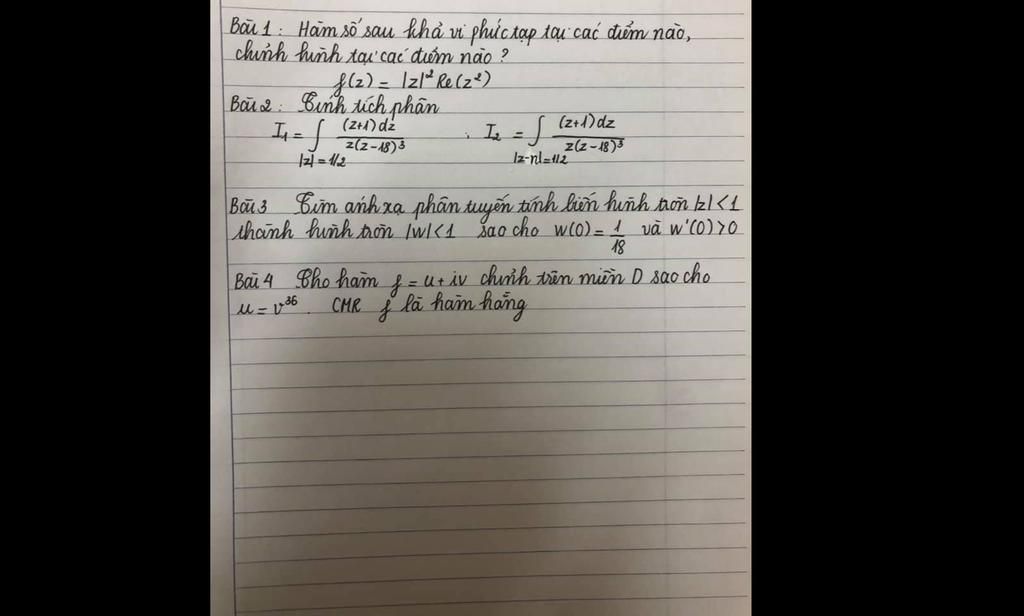 Bài 1: Hàm số sau khả vi phức tạp tại các điểm nào,
chỉnh hình tại các điểm nào?
f(z) = |z|² Re(z²)
Bài 2: Tính tích phân
I₁ = ∫_{|z|=1/2} (z+1)dz / z(z-18)³ . I₂ = ∫_{|z-n|=1/2} (z+1)dz / z(z-18)³
Bài 3 Tìm ánh xạ phân tuyến tính biến hình tròn |z|<1
thành hình tròn |w|<1 sao cho w(0) = 1/18 và w'(0)>0
Bài 4 Cho hàm f = u + iv chỉnh trên miền D sao cho
u = v³⁶. CMR f là hàm hằng